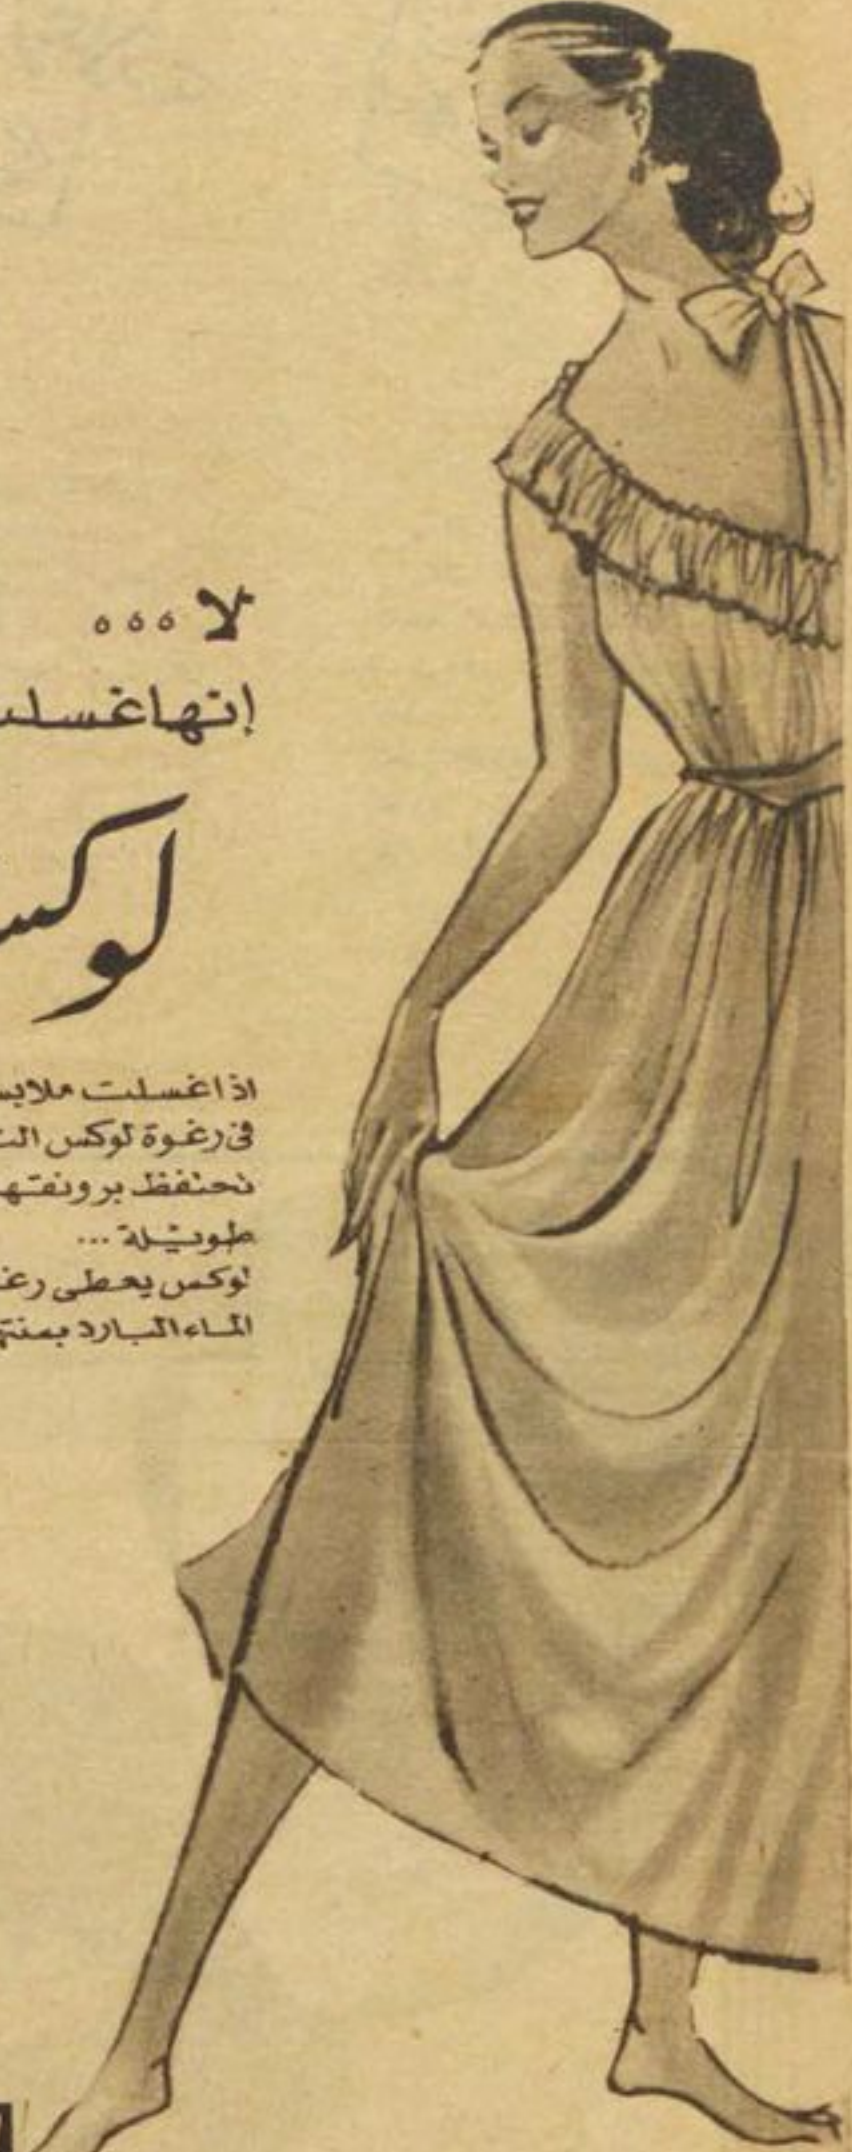 لا...
إنها غسلت
لوكس
اذا غسلت ملابس
فى رغوة لوكس الت
تحتفظ برونقها
طويلة ...
لوكس يعطى رغ
الماء البارد بمنته